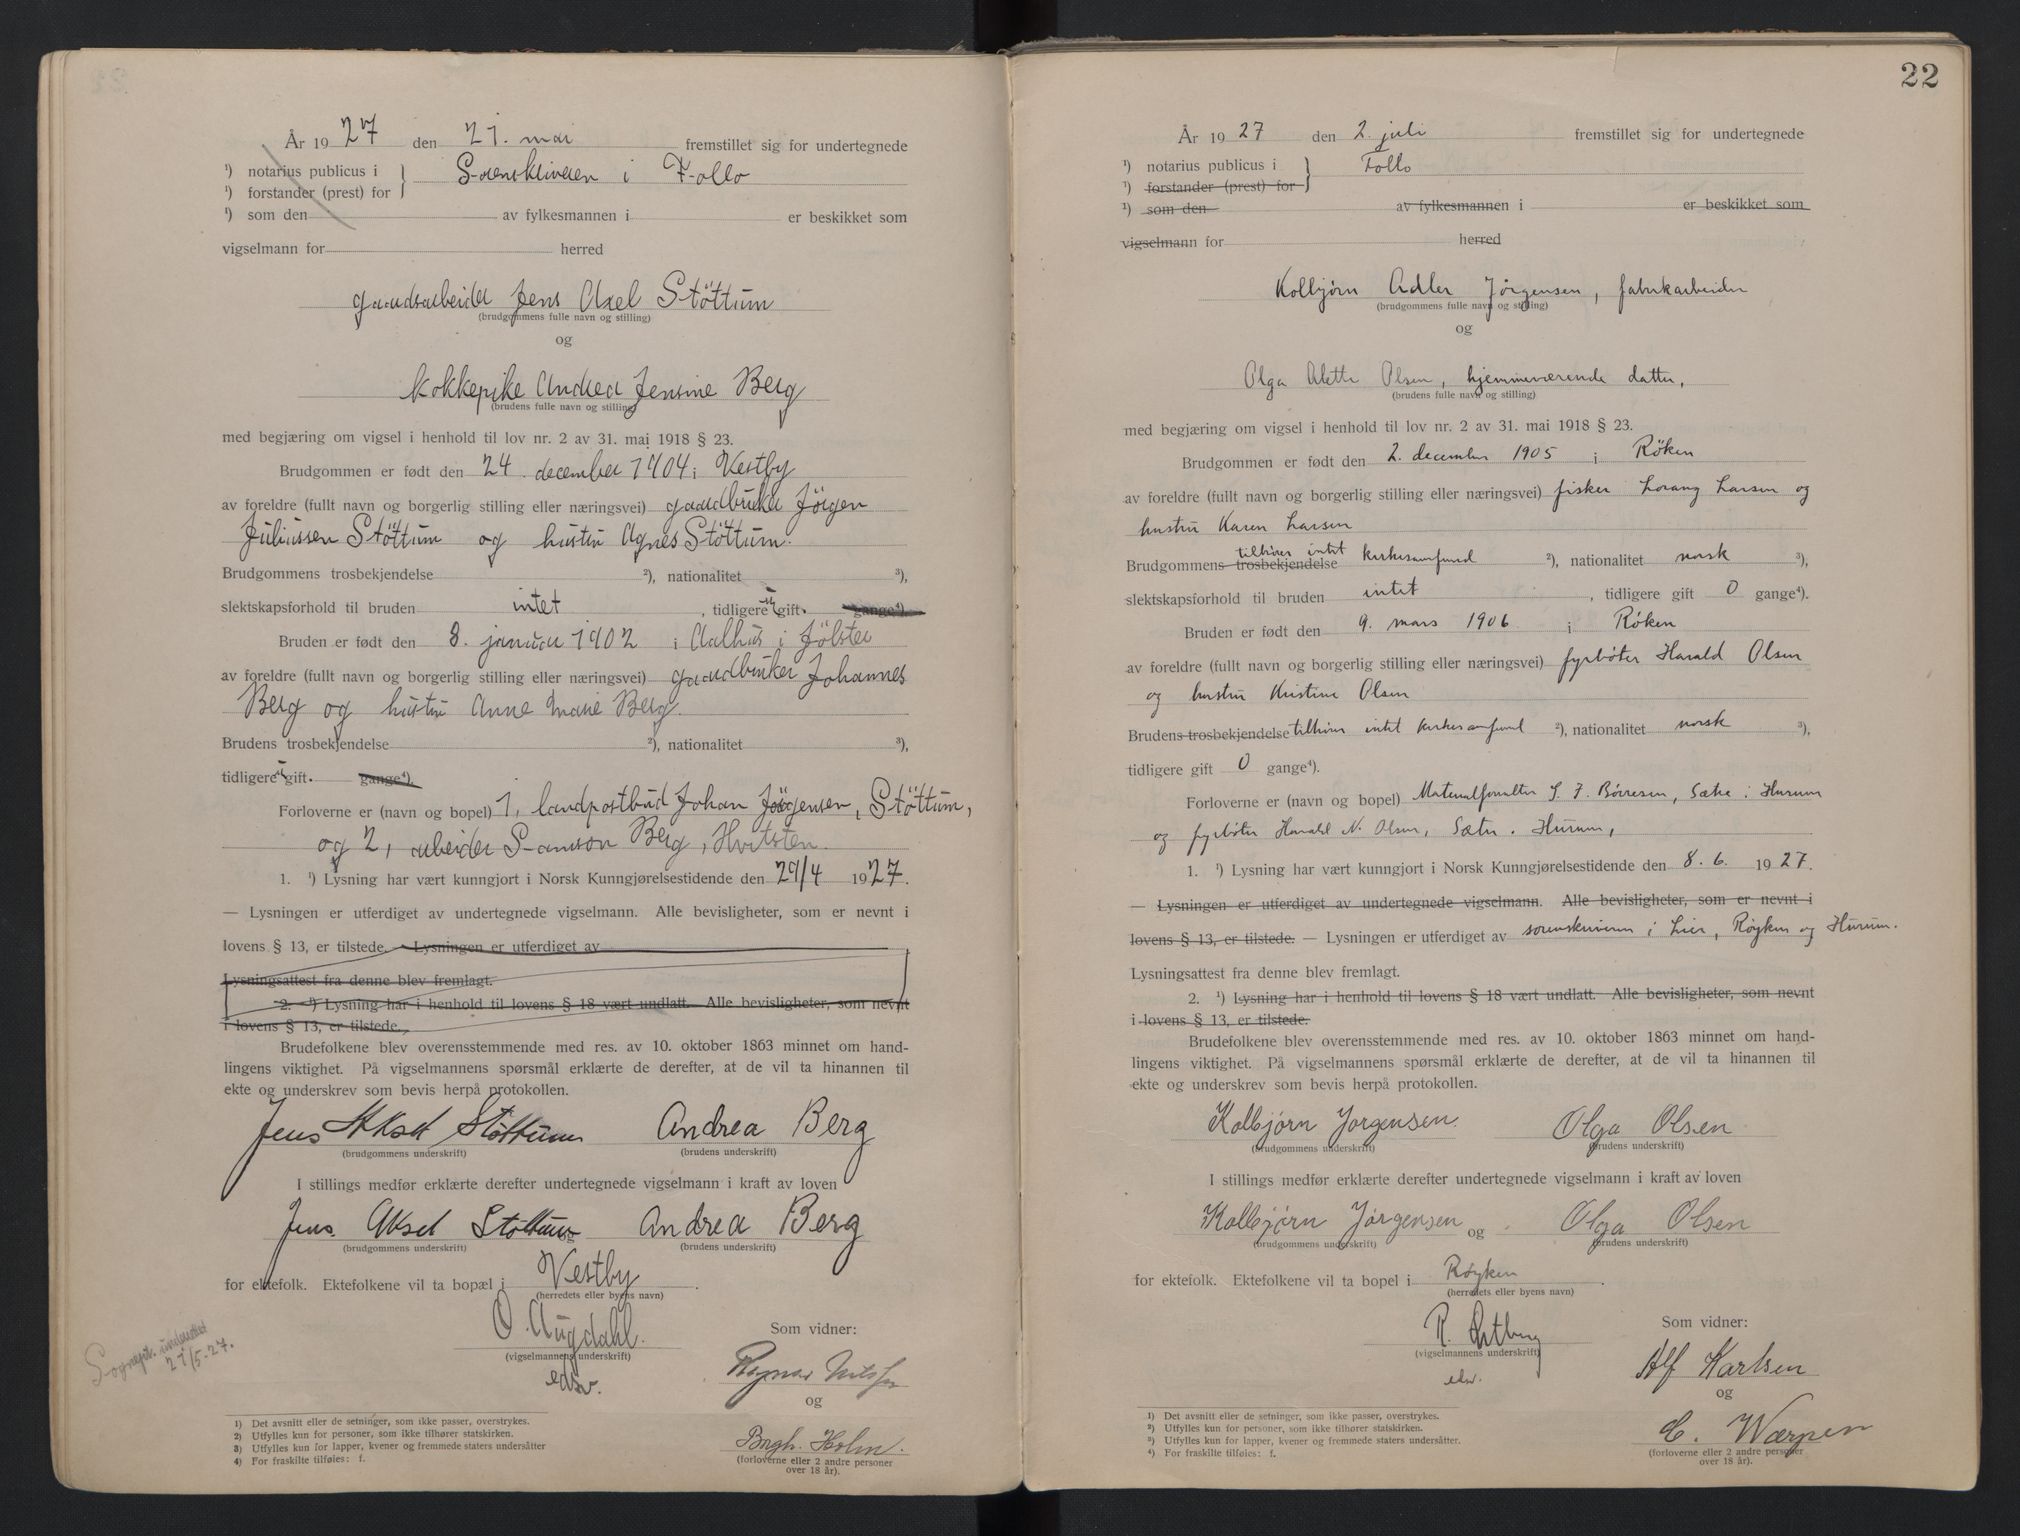 År 1927 den 21. mai fremstillet sig for undertegnede
¹) notarius publicus i
¹) forstander (prest) for } Sorenskriveren i Follo
¹) som den av fylkesmannen i er beskikket som
vigselmann for herred
gaardsarbeider Jens Axel Stöttum
(brudgommens fulle navn og stilling)
og
kokkepike Andrea Jensine Berg
(brudens fulle navn og stilling)
med begjæring om vigsel i henhold til lov nr. 2 av 31. mai 1918 § 23.
Brudgommen er født den 24. december 1904 i Vestby
av foreldre (fullt navn og borgerlig stilling eller næringsvei) gaardbruker Jörgen
Juliussen Stöttum og hustru Agnes Stöttum.
Brudgommens trosbekjendelse ²), nationalitet ³),
slektskapsforhold til bruden intet, tidligere gift. gange⁴).
Bruden er født den 8. januar 1902 i Aalhus i Jölster
av foreldre (fullt navn og borgerlig stilling eller næringsvei) gaardbruker Johannes
Berg og hustru Anne Marie Berg.
Brudens trosbekjendelse ²), nationalitet ³),
tidligere gift. gange⁴).
Forloverne er (navn og bopel) 1, landpostbud Johan Jörgensen, Stöttum,
og 2, arbeider Samson Berg, Hvitsten.
1. ¹) Lysning har vært kunngjort i Norsk Kunngjørelsestidende den 29/4 1927.
— Lysningen er utferdiget av undertegnede vigselmann. Alle bevisligheter, som er nevnt i
lovens § 13, er tilstede. — Lysningen er utferdiget av
Lysningsattest fra denne blev fremlagt.
2. ¹) Lysning har i henhold til lovens § 18 vært undlatt. Alle bevisligheter, som nevnt
i lovens § 13, er tilstede.
Brudefolkene blev overensstemmende med res. av 10. oktober 1863 minnet om hand-
lingens viktighet. På vigselmannens spørsmål erklærte de derefter, at de vil ta hinannen til
ekte og underskrev som bevis herpå protokollen.
Jens Aksel Stöttum Andrea Berg
(brudgommens underskrift) (brudens underskrift)
I stillings medfør erklærte derefter undertegnede vigselmann i kraft av loven
Jens Aksel Stöttum og Andrea Berg
(brudgommens underskrift) (brudens underskrift)
for ektefolk. Ektefolkene vil ta bopæl i Vestby.
(herredets eller byens navn)
O. Augdahl.
(vigselmannens underskrift)
edsv.
Som vidner:
Ragnar Nilsen
og
Borgh. Holm.
(forloverne eller 2 andre personer
over 18 år).
Sognepr. underrettet
21/5-27.
1) Det avsnitt eller de setninger, som ikke passer, overstrykes.
2) Utfylles kun for personer, som ikke tilhører statskirken.
3) Utfylles kun for lapper, kvener og fremmede staters undersåtter
4) For fraskilte tilføies: f.
22
År 1927 den 2. juli fremstillet sig for undertegnede
¹) notarius publicus i
¹) forstander (prest) for } Follo
¹) som den av fylkesmannen i er beskikket som
vigselmann for herred
Kolbjörn Adler Jørgensen, fabrikarbeider
(brudgommens fulle navn og stilling)
og
Olga Alette Olsen, hjemmeværende datter,
(brudens fulle navn og stilling)
med begjæring om vigsel i henhold til lov nr. 2 av 31. mai 1918 § 23.
Brudgommen er født den 2. december 1905 i Røken
av foreldre (fullt navn og borgerlig stilling eller næringsvei) fisker Lorang Larsen og
hustru Karen Larsen
Brudgommens trosbekjendelse tilhører intet kirkesamfund ²), nationalitet norsk ³),
slektskapsforhold til bruden intet, tidligere gift 0 gange⁴).
Bruden er født den 9. mars 1906 i Røken
av foreldre (fullt navn og borgerlig stilling eller næringsvei) fyrbøter Harald Olsen
og hustru Kristine Olsen
Brudens trosbekjendelse tilhører intet kirkesamfund ²), nationalitet norsk ³),
tidligere gift 0 gange⁴).
Forloverne er (navn og bopel) Materialforvalter S. F. Börresen, Sætre i Hurum
og fyrbøter Harald N. Olsen, Sætre. Hurum,
1. ¹) Lysning har vært kunngjort i Norsk Kunngjørelsestidende den 8. 6. 1927.
— Lysningen er utferdiget av undertegnede vigselmann. Alle bevisligheter, som er nevnt i
lovens § 13, er tilstede. — Lysningen er utferdiget av sorenskriveren i Lier, Røyken og Hurum.
Lysningsattest fra denne blev fremlagt.
2. ¹) Lysning har i henhold til lovens § 18 vært undlatt. Alle bevisligheter, som nevnt
i lovens § 13, er tilstede.
Brudefolkene blev overensstemmende med res. av 10. oktober 1863 minnet om hand-
lingens viktighet. På vigselmannens spørsmål erklærte de derefter, at de vil ta hinannen til
ekte og underskrev som bevis herpå protokollen.
Kolbjørn Jørgensen. Olga Olsen
(brudgommens underskrift) (brudens underskrift)
I stillings medfør erklærte derefter undertegnede vigselmann i kraft av loven
Kolbjørn Jørgensen og Olga Olsen
(brudgommens underskrift) (brudens underskrift)
for ektefolk. Ektefolkene vil ta bopel i Røyken.
(herredets eller byens navn)
(vigselmannens underskrift)
edsv.
Som vidner:
Alf Karlsen
og
C. Wærpen
(forloverne eller 2 andre personer
over 18 år).
1) Det avsnitt eller de setninger, som ikke passer, overstrykes.
2) Utfylles kun for personer, som ikke tilhører statskirken.
3) Utfylles kun for lapper, kvener og fremmede staters undersåtter.
4) For fraskilte tilføies: f.